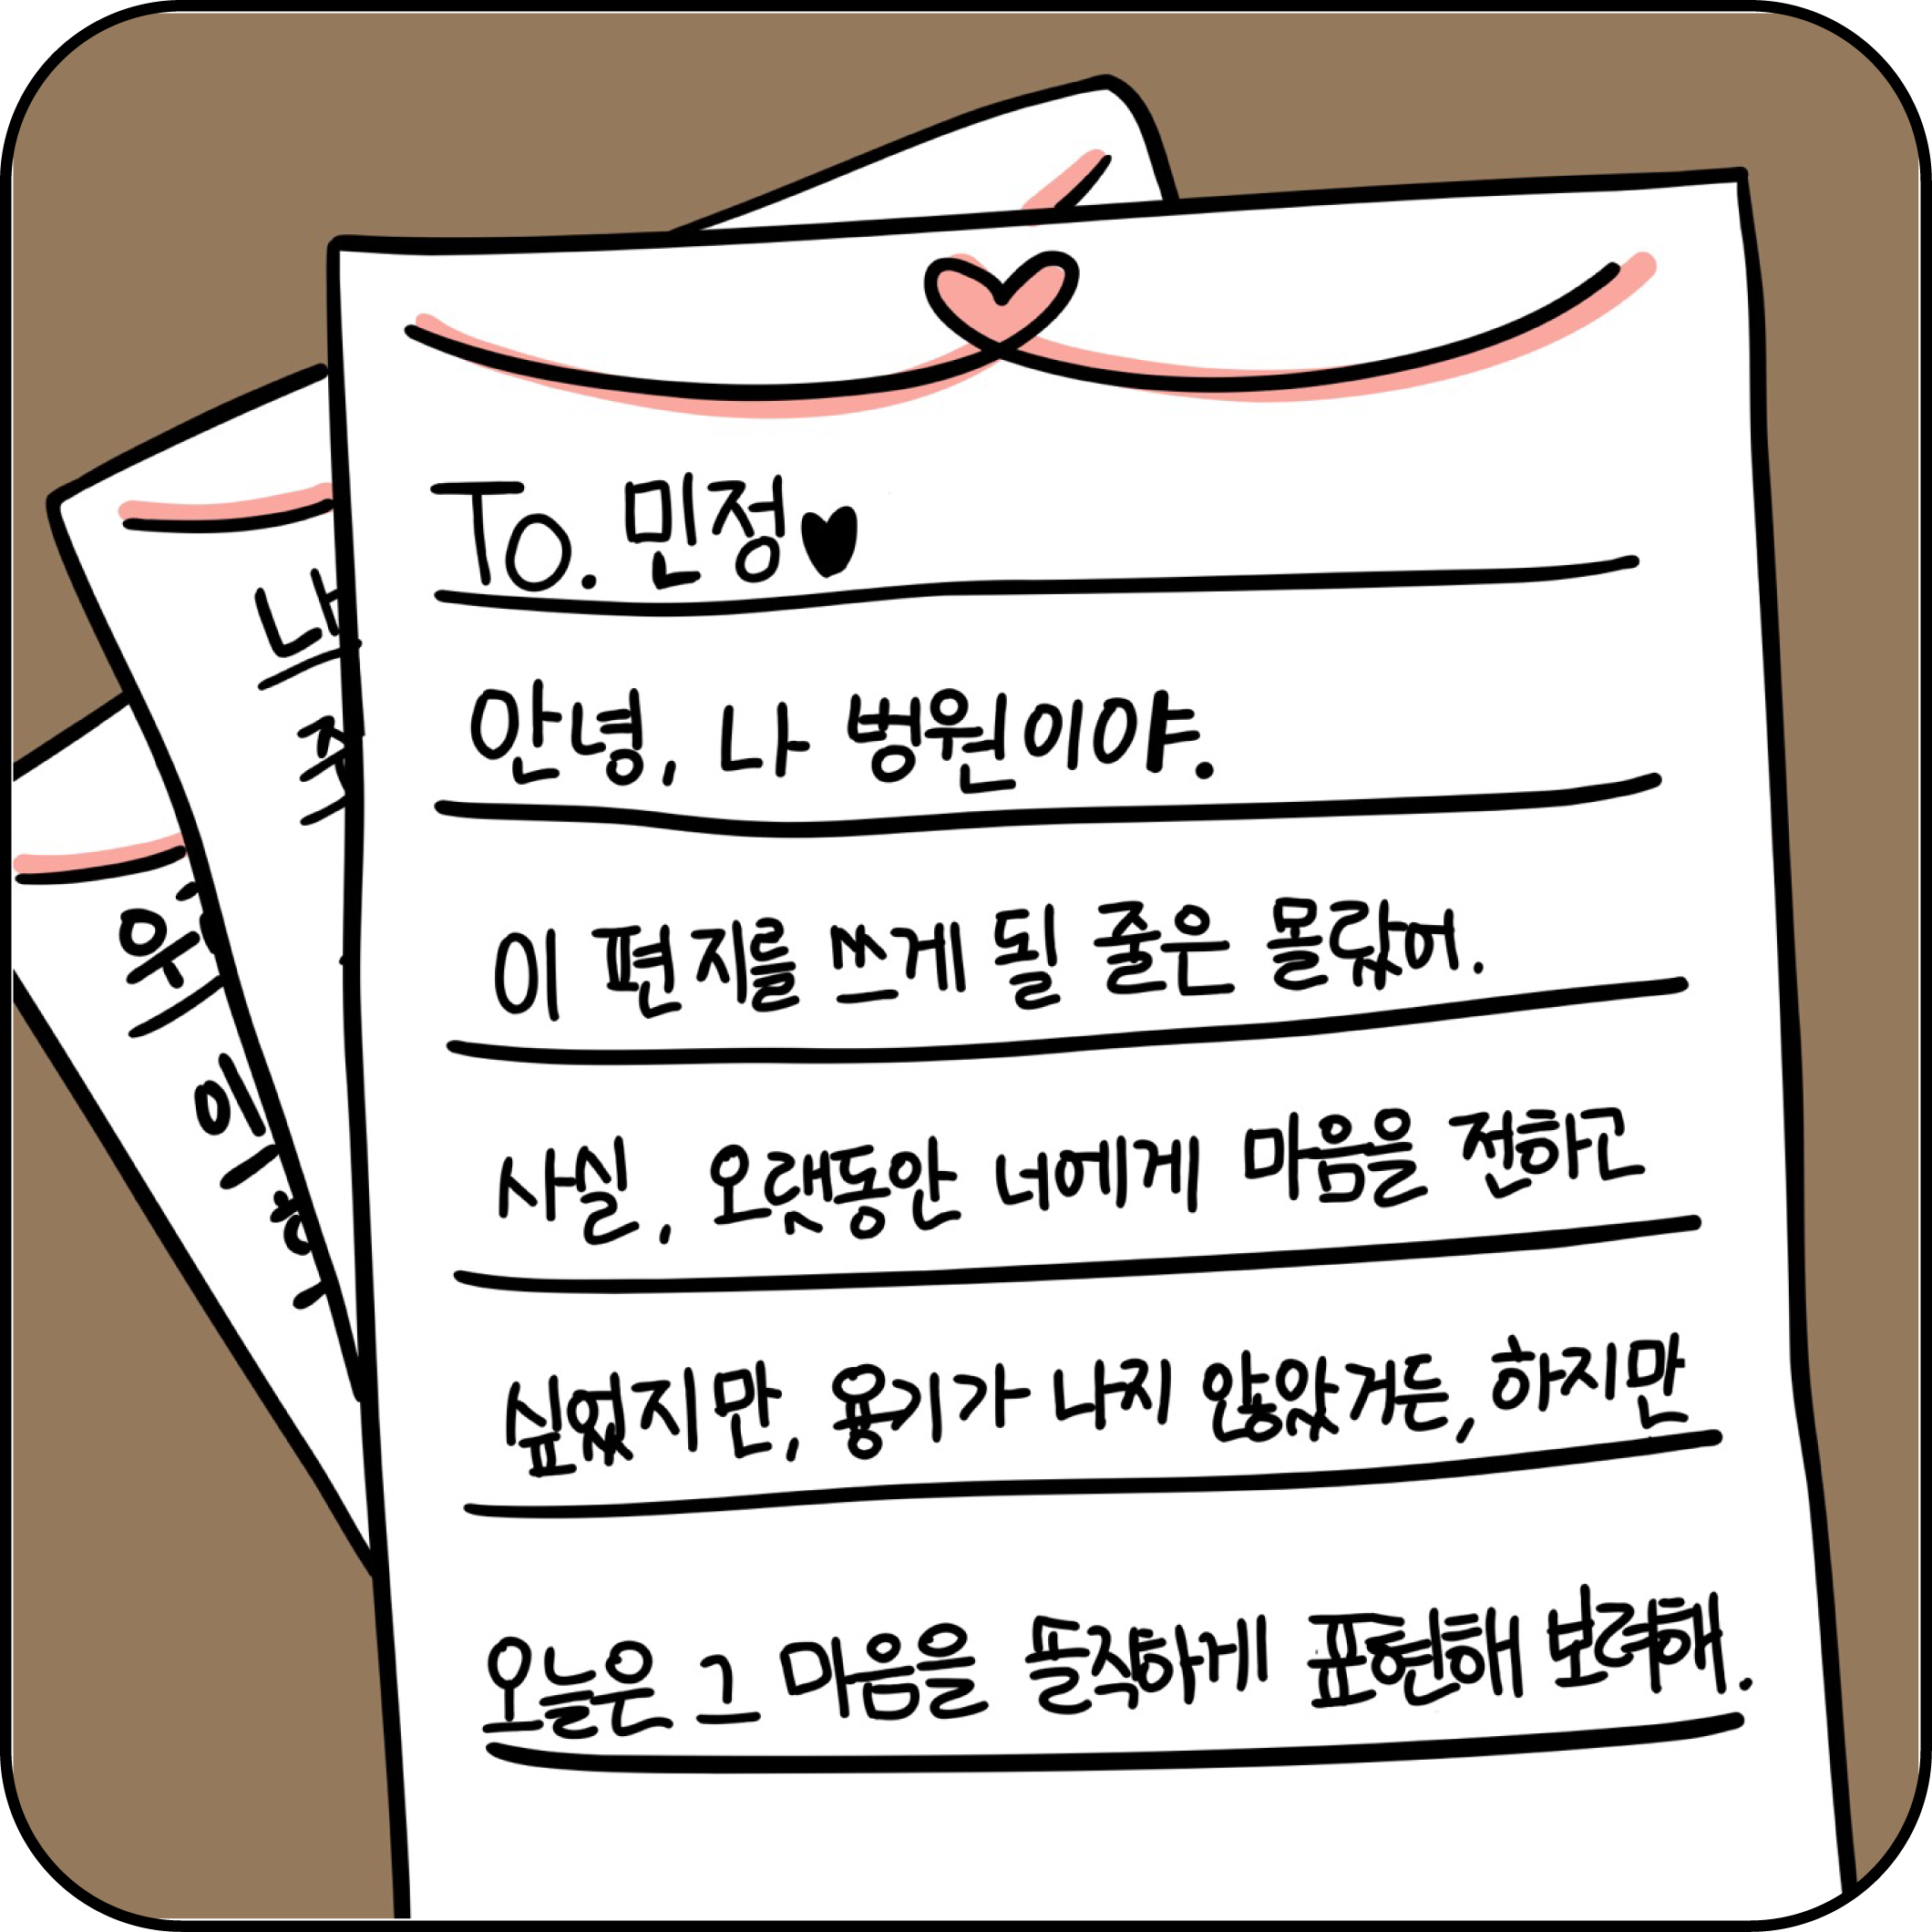 To. 민정♥
안녕, 나 병원이야.
이 편지를 쓰게 될 줄은 몰랐어.
사실, 오랫동안 너에게 마음을 전하고
싶었지만, 용기가 나지 않았거든, 하지만
오늘은 그 마음을 솔직하게 표현해 보려해.